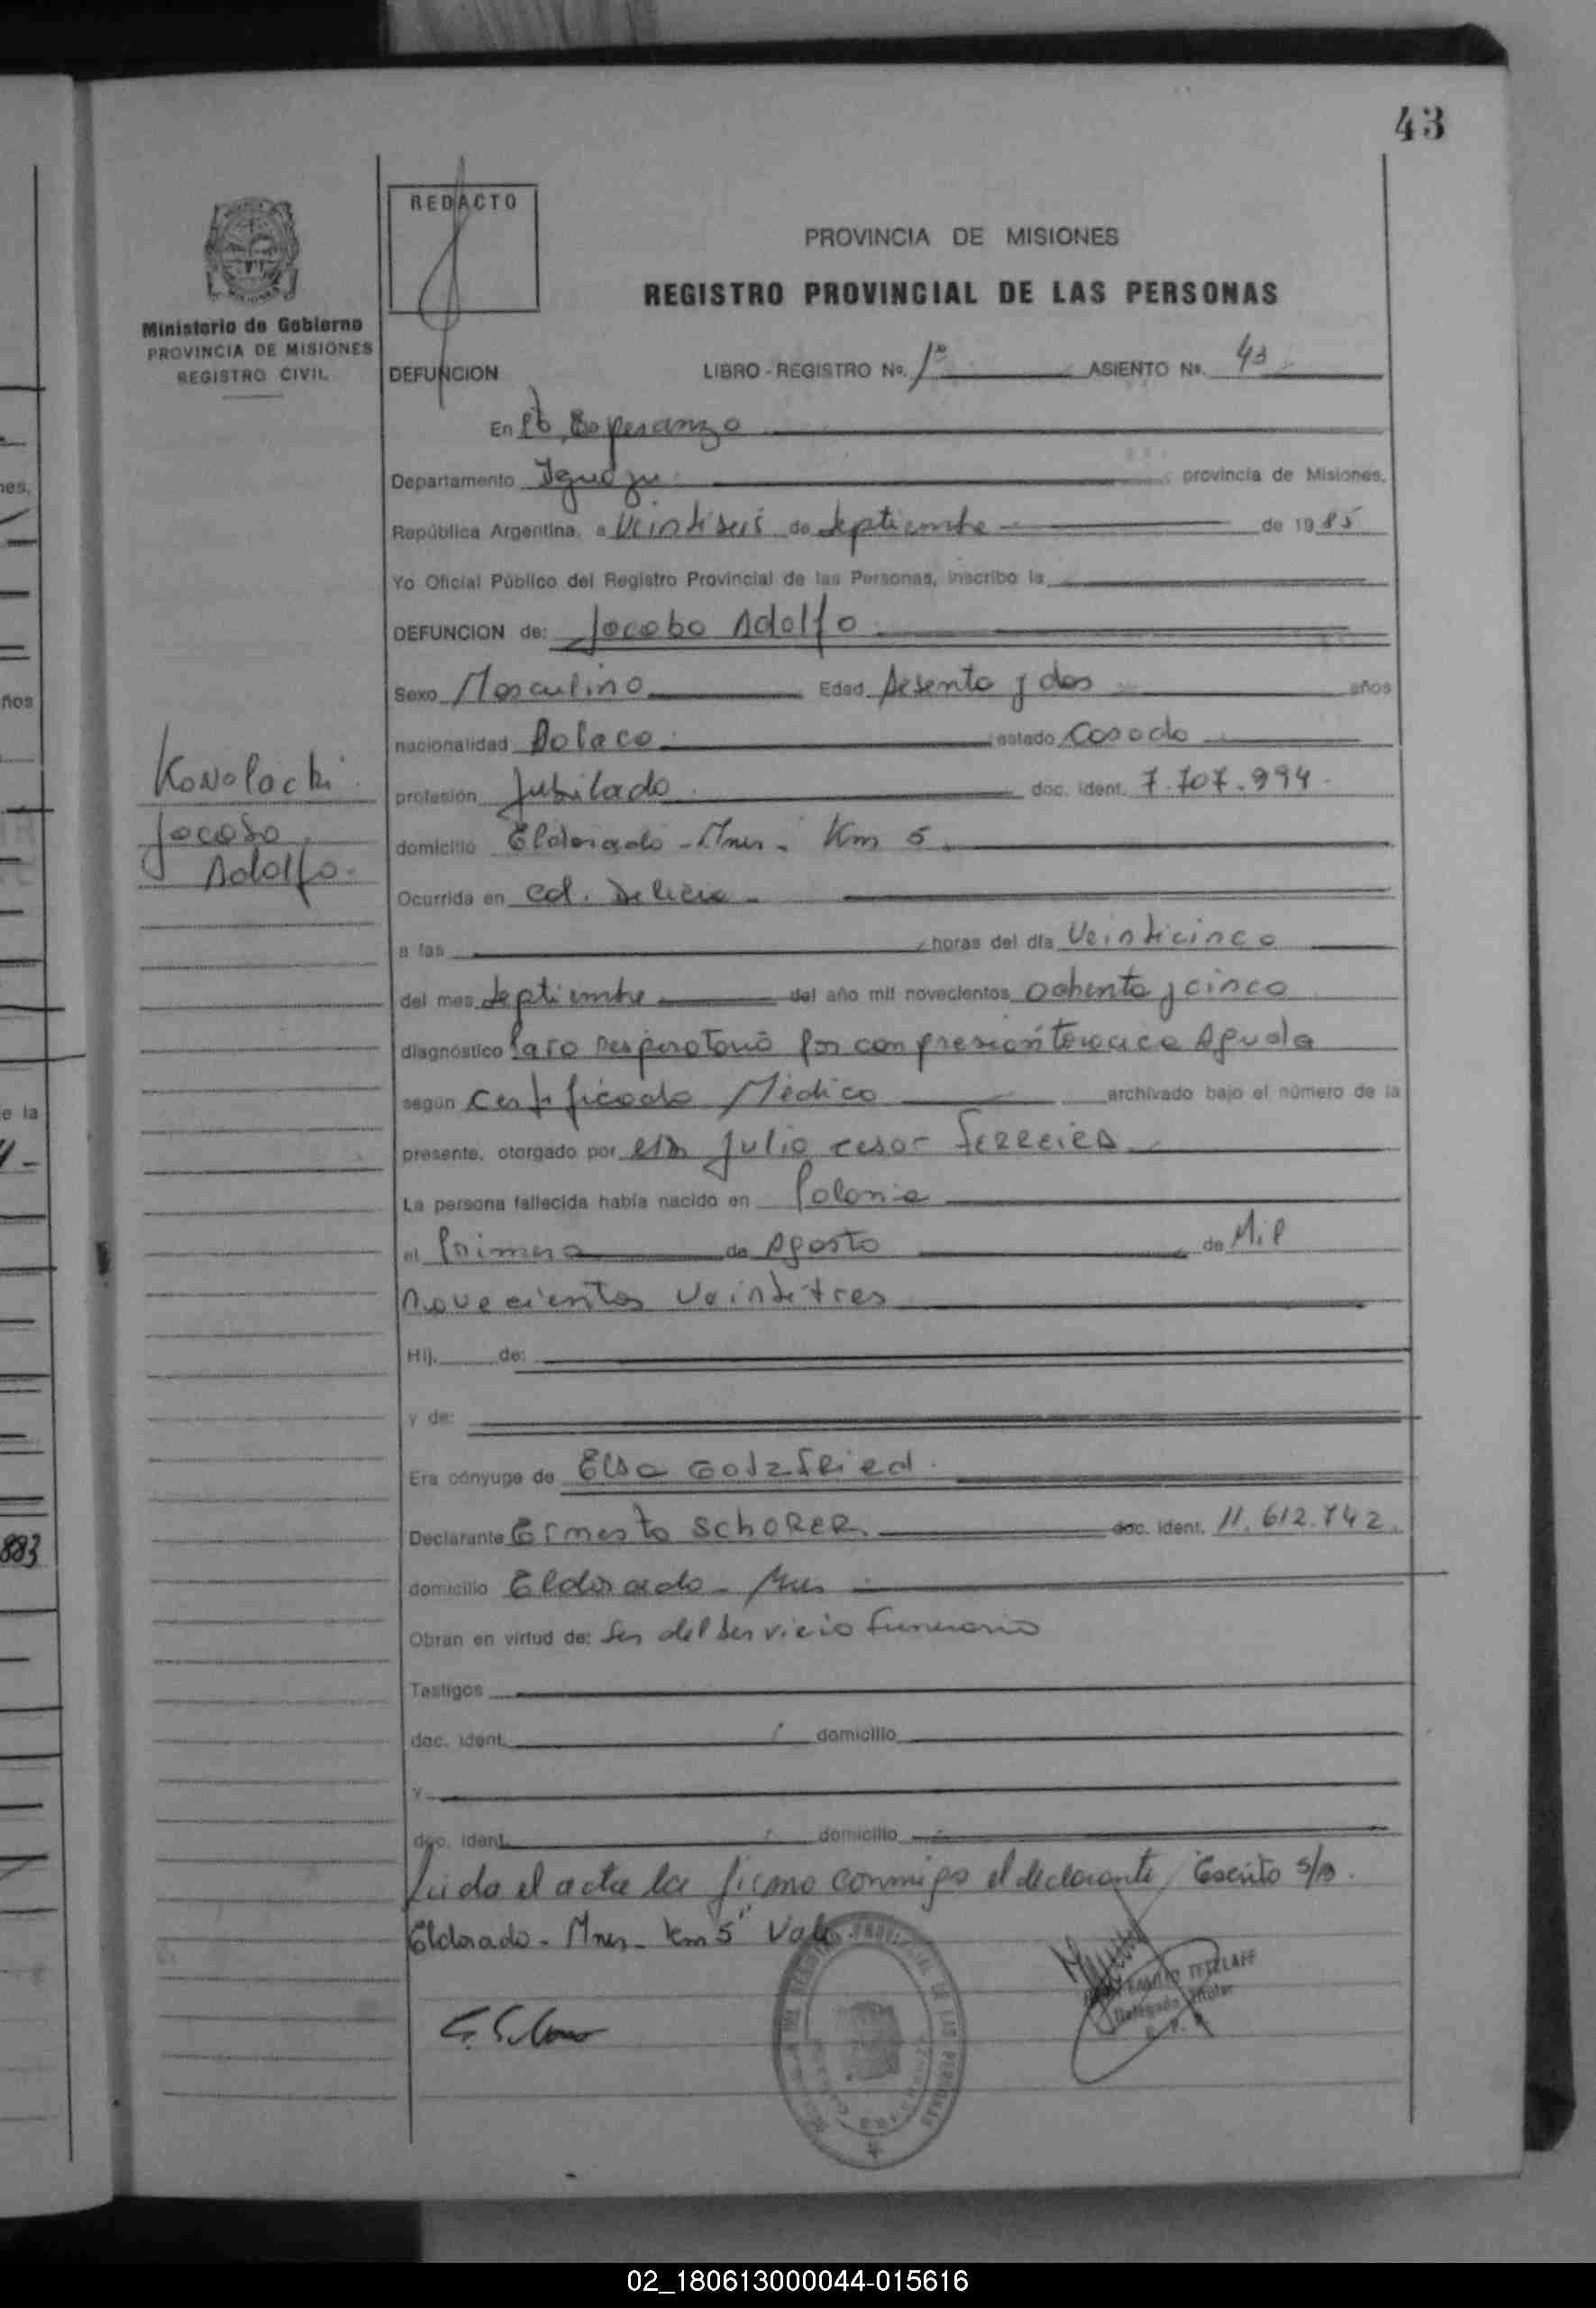 43
REDACTO
PROVINCIA DE MISIONES
REGISTRO PROVINCIAL DE LAS PERSONAS
Ministerio de Gobierno
PROVINCIA DE MISIONES
REGISTRO CIVIL
DEFUNCION LIBRO - REGISTRO No. 1º ASIENTO No. 43
En Pto Esperanza
Departamento Iguazu provincia de Misiones,
República Argentina, a Veintiseis de Septiembre de 1985
Yo Oficial Público del Registro Provincial de las Personas, inscribo la
DEFUNCION de: Jacobo Adolfo
Sexo Masculino Edad Sesenta y dos años
nacionalidad Polaco estado Casado
Konolachi
Jacobo
Adolfo.
profesión Jubilado doc. ident. 7.707.994.
domicilio Eldorado - Mnes. Km 5.
Ocurrida en Col. Delicia
a las horas del día Veinticinco
del mes Septiembre del año mil novecientos ochenta y cinco
diagnóstico Paro Respiratorio por compresion toracica Aguda
según Certificado Médico archivado bajo el número de la
presente, otorgado por el Dr Julio Cesar Ferreira
La persona fallecida había nacido en Polonia
el Primero de Agosto de Mil
novecientos Veintitres
Hij. de:
y de:
Era cónyuge de Elsa Gotzfried
Declarante Ernesto SCHORER doc. ident. 11.612.742.
domicilio Eldorado - Mnes
Obran en virtud de: Ser del Servicio Funerario
Testigos
doc. ident. domicilio
y
doc. ident. domicilio
Leida el acta la firma conmigo el declarante, Escrito s/R.
Eldorado - Mnes - Km 5" Vale
EMILIO TETZLAFF
Delegado Titular
883
e la
ños
nes,
02_180613000044-015616